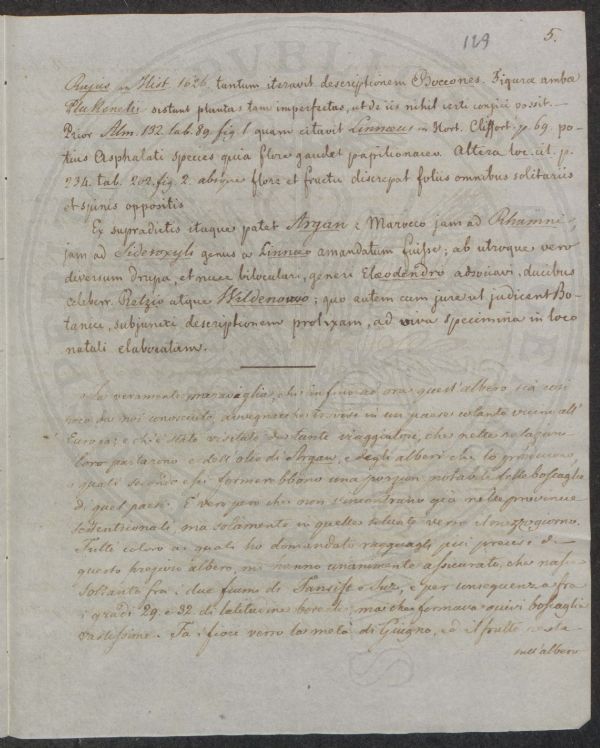 129
5.
Rajus in Hist. 1626. tantum iteravit descriptionem Bocconis. Figuræ ambæ
Plukenetii sistunt plantas tam imperfectas, ut de iis nihil certi conjici possit. —
Prior Alm. 132. tab. 89. fig. 1. quam citavit Linnæus in Hort. Cliffort. p. 69. po-
tius Asphalati species quia flore gaudet papilionaceo. Altera loc. cit. p.
234. tab. 202. fig. 2. absque flore et fructu discrepat foliis omnibus solitariis
et spinis oppositis
Ex supradictis itaque patet Argan e Marocco jam ad Rhamni,
jam ad Sideroxyli genus a Linnæo amandatum fuisse; ab utroque vero
diversum drupa, et nuce biloculari, generi Elæodendro adsociavi, ducibus
celeberr. Retzio atque Wildenowo; quo autem cum jure ut judicent Bo-
tanici, subjunxi descriptionem prolixam, ad viva specimina in loco
natali elaboratam.
Fa veramente maraviglia, che infino ad ora quest' albero sia così
poco da noi conosciuto, avvegnacchè trovisi in un paese cotanto vicino all'
Europa; e ch'è stato visitato da tante viaggiatori, che nelle relazioni
loro parlarono e dell' olio di Argan, e degli alberi che lo producono,
i quali secondo essi formerebbono una porzion notabile delle boscaglie
di quel paese. È vero però che non s'incontrano già nelle provincie
settentrionali, ma solamente in quelle situate verso il mezzogiorno.
Tutti coloro ai quali ho domandato ragguagli più precisi di
questo bregioso albero, mi hanno unanimente assicurato, che nasce
soltanto fra i due fiumi di Tansift e Suz, e per conseguenza fra
i gradi 29. e 32. di latitudine boreale; ma che formava quivi boscaglie
vastissime. Fa i fiori verso la metà di Giugno, ed il frutto resta
sull' albero